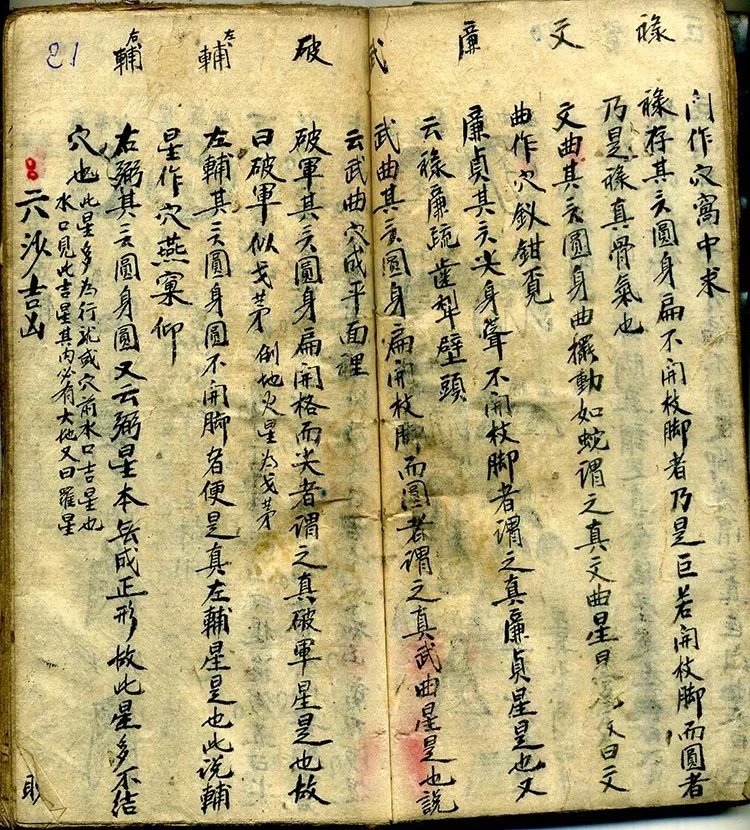 祿
文
廉
武
破
左輔
右輔
21
门作穴窩中求
祿存其头圓身扁不開枝脚者乃是巨若開枝脚而圓者
乃是祿真骨氣也
文曲其头圓身曲擺動如蛇謂之真文曲星是又曰文
曲作穴釵鉗覓
廉貞其头尖身聳不開枝脚者謂之真廉貞星是也又
云祿廉疏齒犁壁頭
武曲其头圓身扁開枝脚而圓者謂之真武曲星是也說
云武曲穴成平面裡
破軍其头圓身扁開格而尖者謂之真破軍星是也故
曰破軍似戈茅 倒地火星為戈茅
左輔其头圓身圓不開脚者便是真左輔星是也此說輔
星作穴燕窠仰
右弼其头圓身圓又云弼星本無成正形故此星多不結
穴也
此星多為行龍或穴前水口吉星也
水口見此吉星其內必有大地又曰羅星
8 六沙吉凶